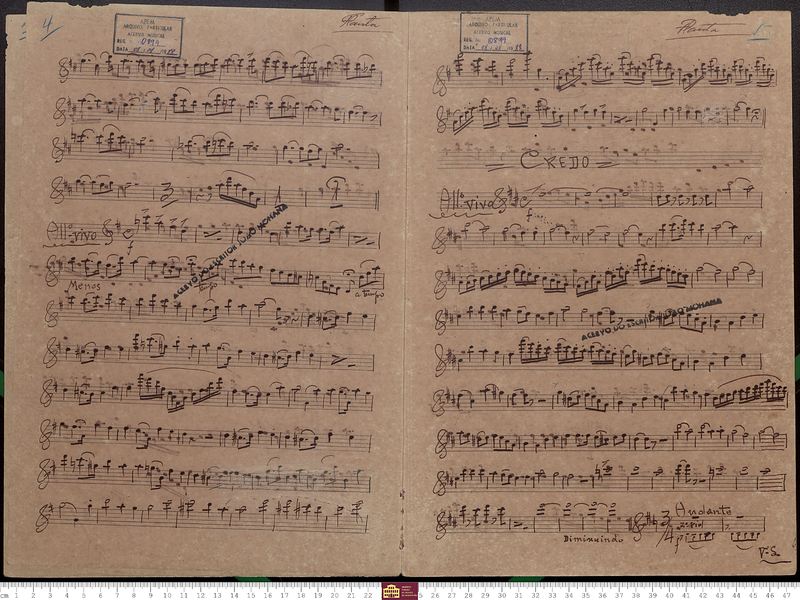 4
Flauta
APEM
ARQUIVO PARTICULAR
ACERVO MUSICAL
REG. Nº
DATA
All.º vivo
f
ACERVO DO ESCRITOR JOÃO MOHANA
Menos
a tempo
Flauta
5
APEM
ARQUIVO PARTICULAR
ACERVO MUSICAL
REG. Nº
DATA
CREDO
All.º vivo
f
ACERVO DO ESCRITOR JOÃO MOHANA
Andante
Diminuindo
V. S.
cm 1 2 3 4 5 6 7 8 9 10 11 12 13 14 15 16 17 18 19 20 21 22
26 27 28 29 30 31 32 33 34 35 36 37 38 39 40 41 42 43 44 45 46 47